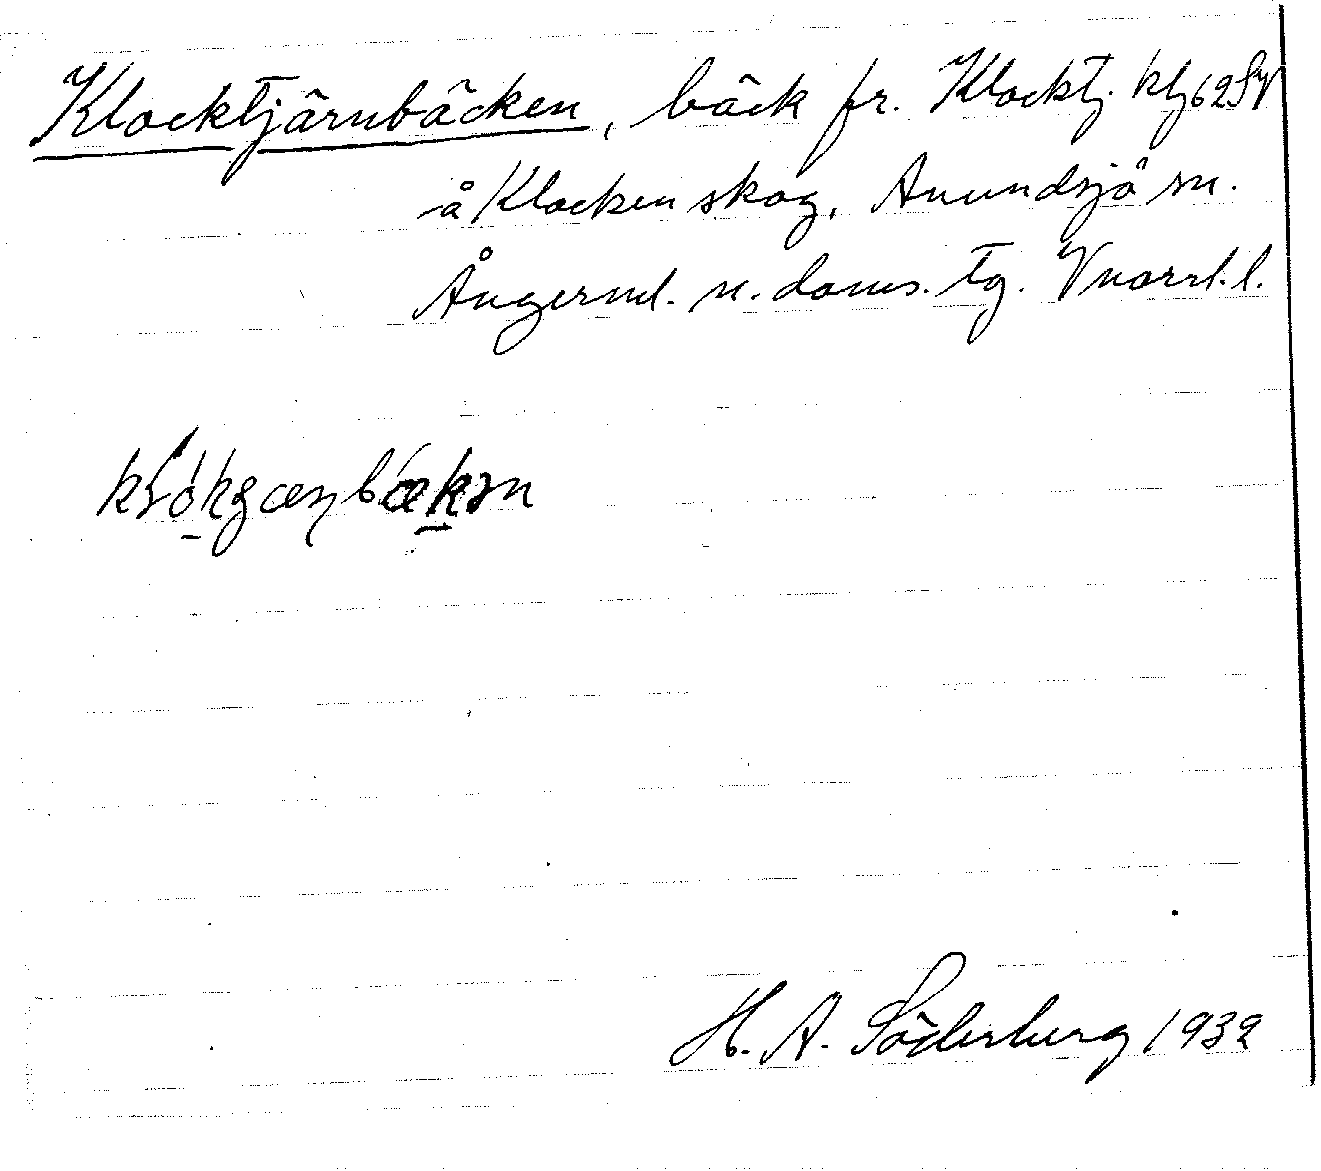 Klocktjärnbäcken, bäck fr. Klocktj. klj 62 Sv
å Klocken skog, Anundsjö sn.
Ångerml. n. doms. tg. Vnorrl. l.
H. A. Söderberg 1932